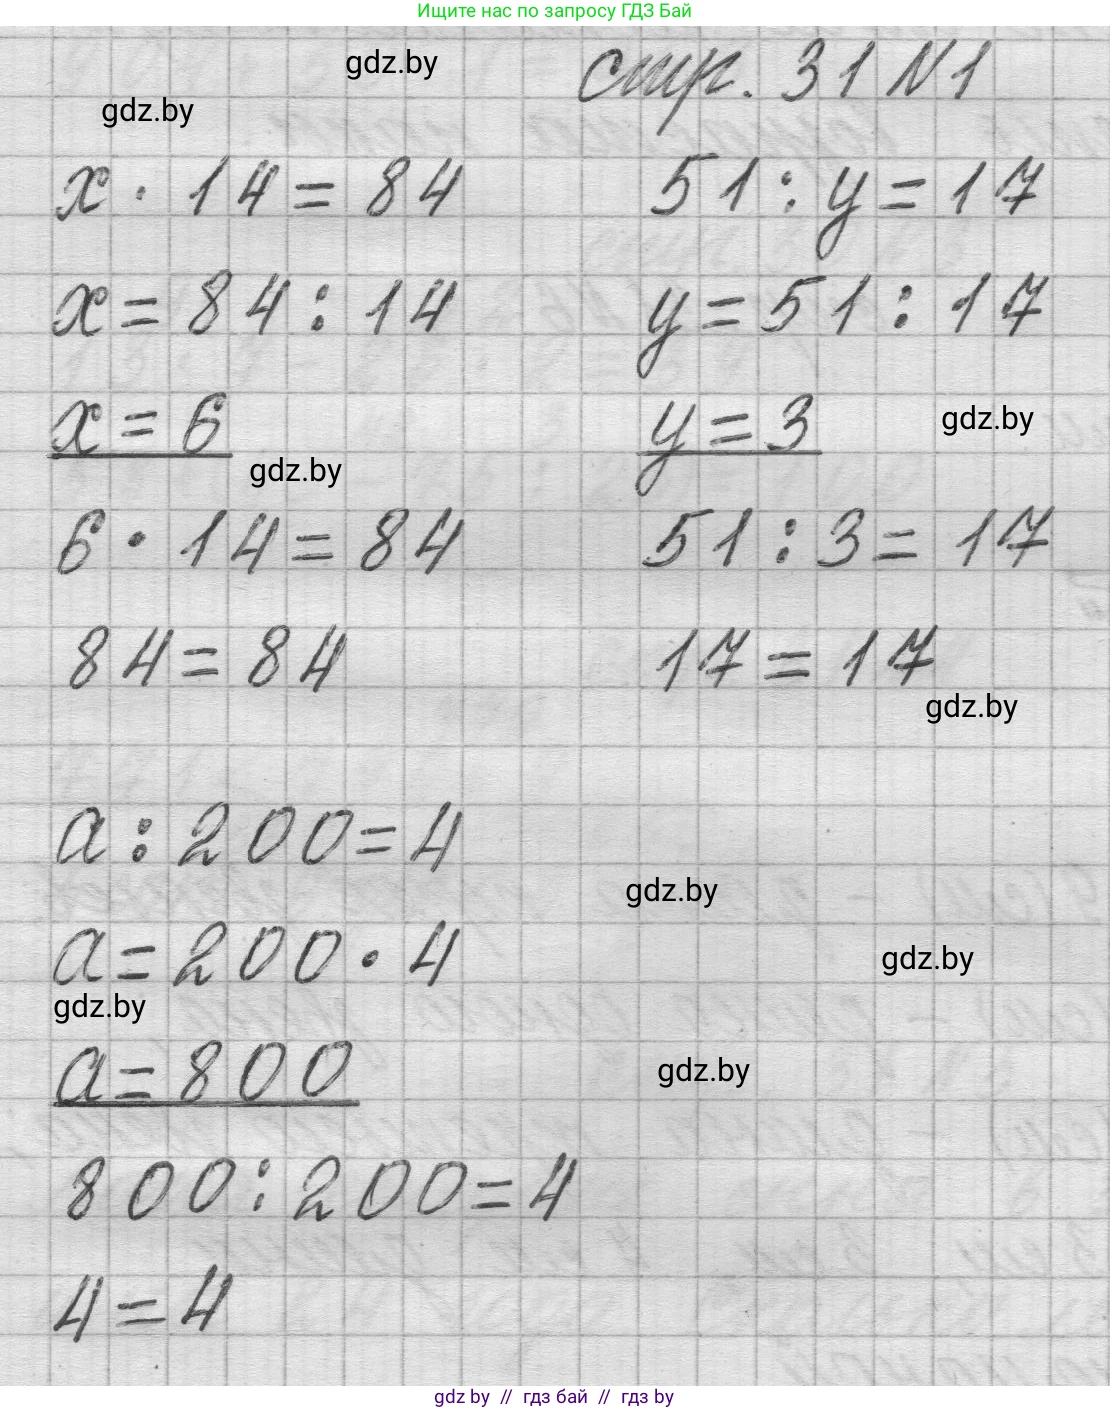 Ищите нас по запросу ГДЗ Бай
gdz.by
стр. 31 N1
gdz.by
x · 14 = 84
51 : y = 17
x = 84 : 14
y = 51 : 17
x = 6
y = 3
gdz.by
gdz.by
6 · 14 = 84
51 : 3 = 17
84 = 84
17 = 17
gdz.by
a : 200 = 4
gdz.by
a = 200 · 4
gdz.by
gdz.by
a = 800
gdz.by
800 : 200 = 4
4 = 4
gdz by // гдз бай // гдз by